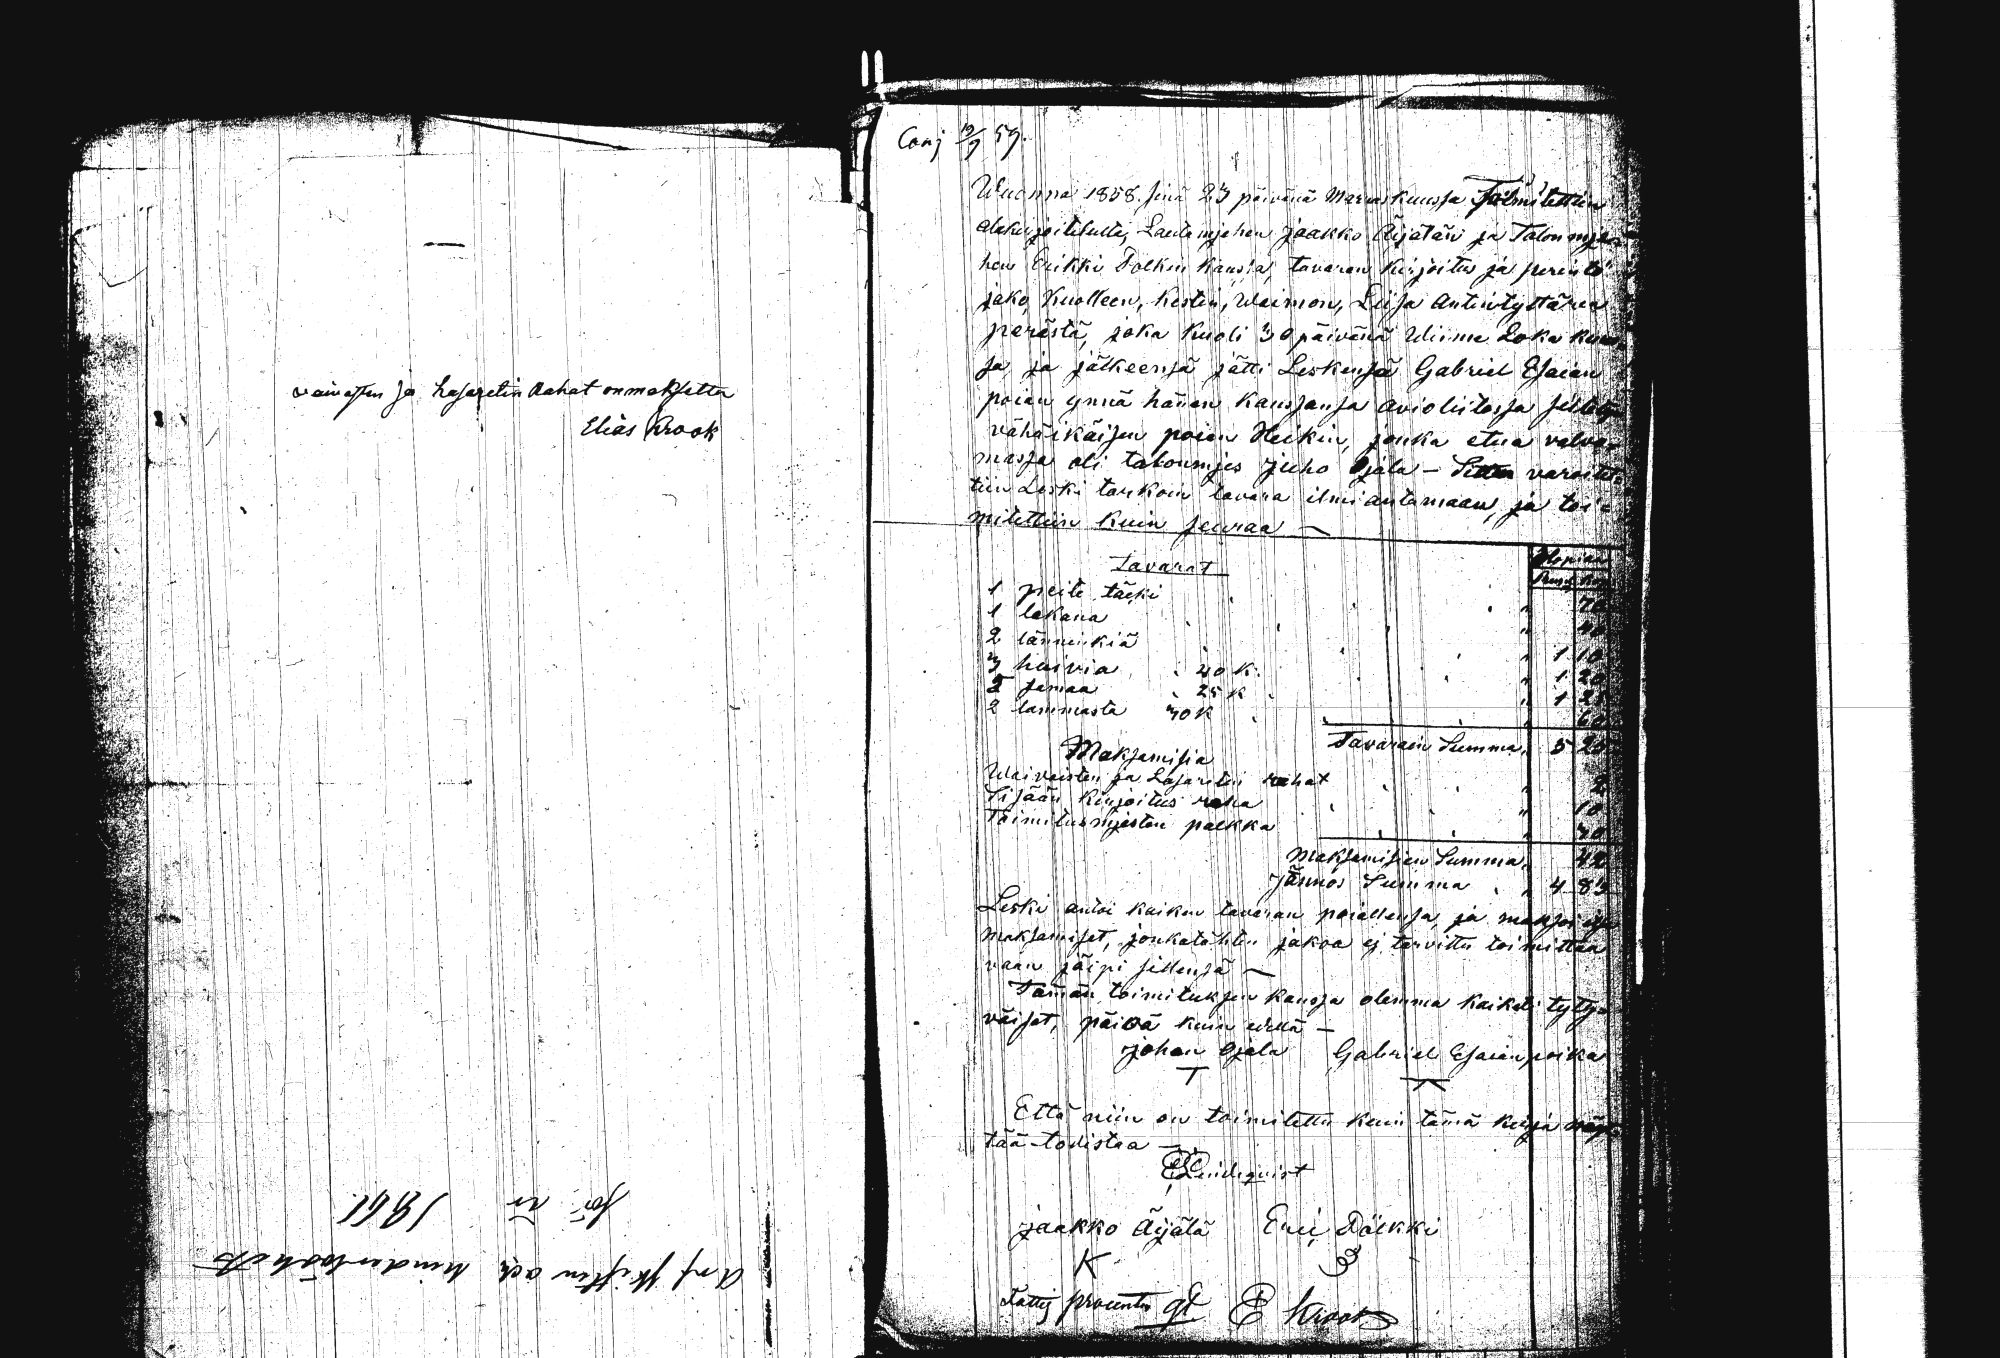 vaivasten ja lasaretin Rahat on maksettu
Elias Krook
för år 1861.
Arf skiften och
Conj 19/9 59.
Wuonna 1858. sinä 23 päivänä Marraskuussa Toimitettiin
allekirjoitetulta, Lautamjehen Jaakko Äijälän ja Talonmje-
hen Erikki Tölkin kanssa, tavaran kirjoitus ja perintö
jako, Kuolleen, Kestin, Waimon, Liisa Antintyttären
perästä, joka kuoli 30 päivänä Wiime Loka kuus-
sa, ja jälkeensä jätti Leskensä Gabriel Esaian
poian ynnä hänen kanssansa avioliitossa
vähäikäisen poian Heikin, jonka etua valvo-
massa oli talonmjes Juho Ojala — Sitten varoitet-
tiin Leski tarkoin tavara ilmiantamaan, ja toi-
mitettiin kuin seuraa —
Tavarat
Hopiassa
Rupl. Kop.
1 peite täcki " 70
1 lakana " 40
2 länninkiä " 1 10
3 huivia 40 K. " 1 20
5 samaa 25 K " 1 25
2 lammasta 30 K " 60
Tavarain Summa " 5 25
Maksamisia
Waivaisten ja Lasaretin rahat " 2
Sisään kirjoitus raha " 10
Toimitusmjesten palkka " 30
Maksamisien Summa " 42
Jäännös Summa " 4 83
Leski antoi kaiken tavaran poiallensa, ja maksoi itse
maksamiset, jonkatähten jakoa ej tarvittu toimittaa
vaan jäipi sillensä —
Tämän toimituksen kanssa olemma kaikati tyty-
väiset, päivä kuin edellä —
Johan Ojala Gabriel Esaianpoika
Että niin on toimitettu kuin tämä kirja näyt-
tää todistaa —
E Lindqvist
Jaakko Äijälä Eric Tölkki
K
Fattig procenten gl E Krook